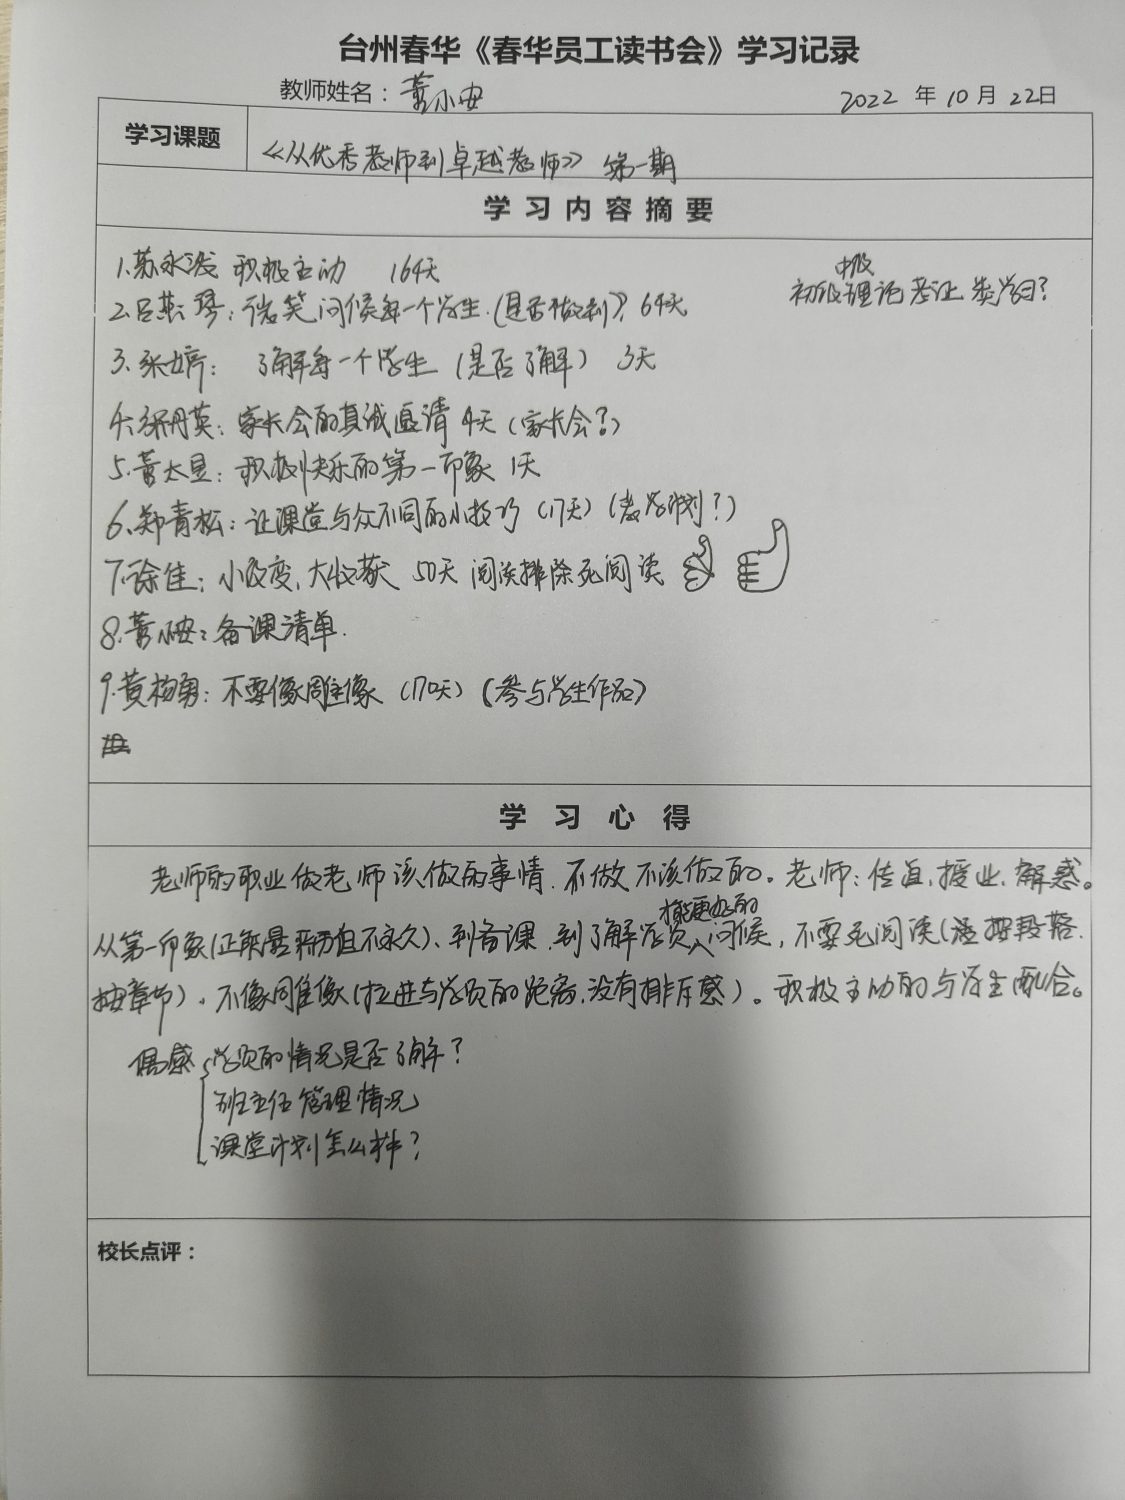 台州春华《春华员工读书会》学习记录
教师姓名：董小安 2022 年 10 月 22日
学习课题 《从优秀教师到卓越教师》 第一期
学习内容摘要
1.苏永 积极主动 164天
中级
初级 考证 类
2.吕燕琴：微笑问候每一个学生.(是否做到)? 64天
3.张婷： 了解每一个学生 (是否了解) 3天
4.张丹英：家长会的真诚邀请 4天 (家长会?)
5.董太显：积极快乐的第一印象 1天
6.郑青松：让课堂与众不同的小技巧 (17天) (教学计划?)
7.徐佳：小改变，大收获 50天 阅读排除死阅读
8.董小安：备课清单.
9.黄杨勇：不要像雕像 (170天) (参与学生作品)
学习心得
老师的职业做老师该做的事情.不做不该做的。老师：传道.授业.解惑。
才能更好的
从第一印象(正能量 但不永久)、到备课.到了解学员 问候，不要死阅读( 按段落.
按章节)，不像雕像(拉进与学员的距离.没有排斥感)。积极主动的与学生配合。
偶感 学员的情况是否了解？
班主任管理情况
课堂计划怎么样？
校长点评：